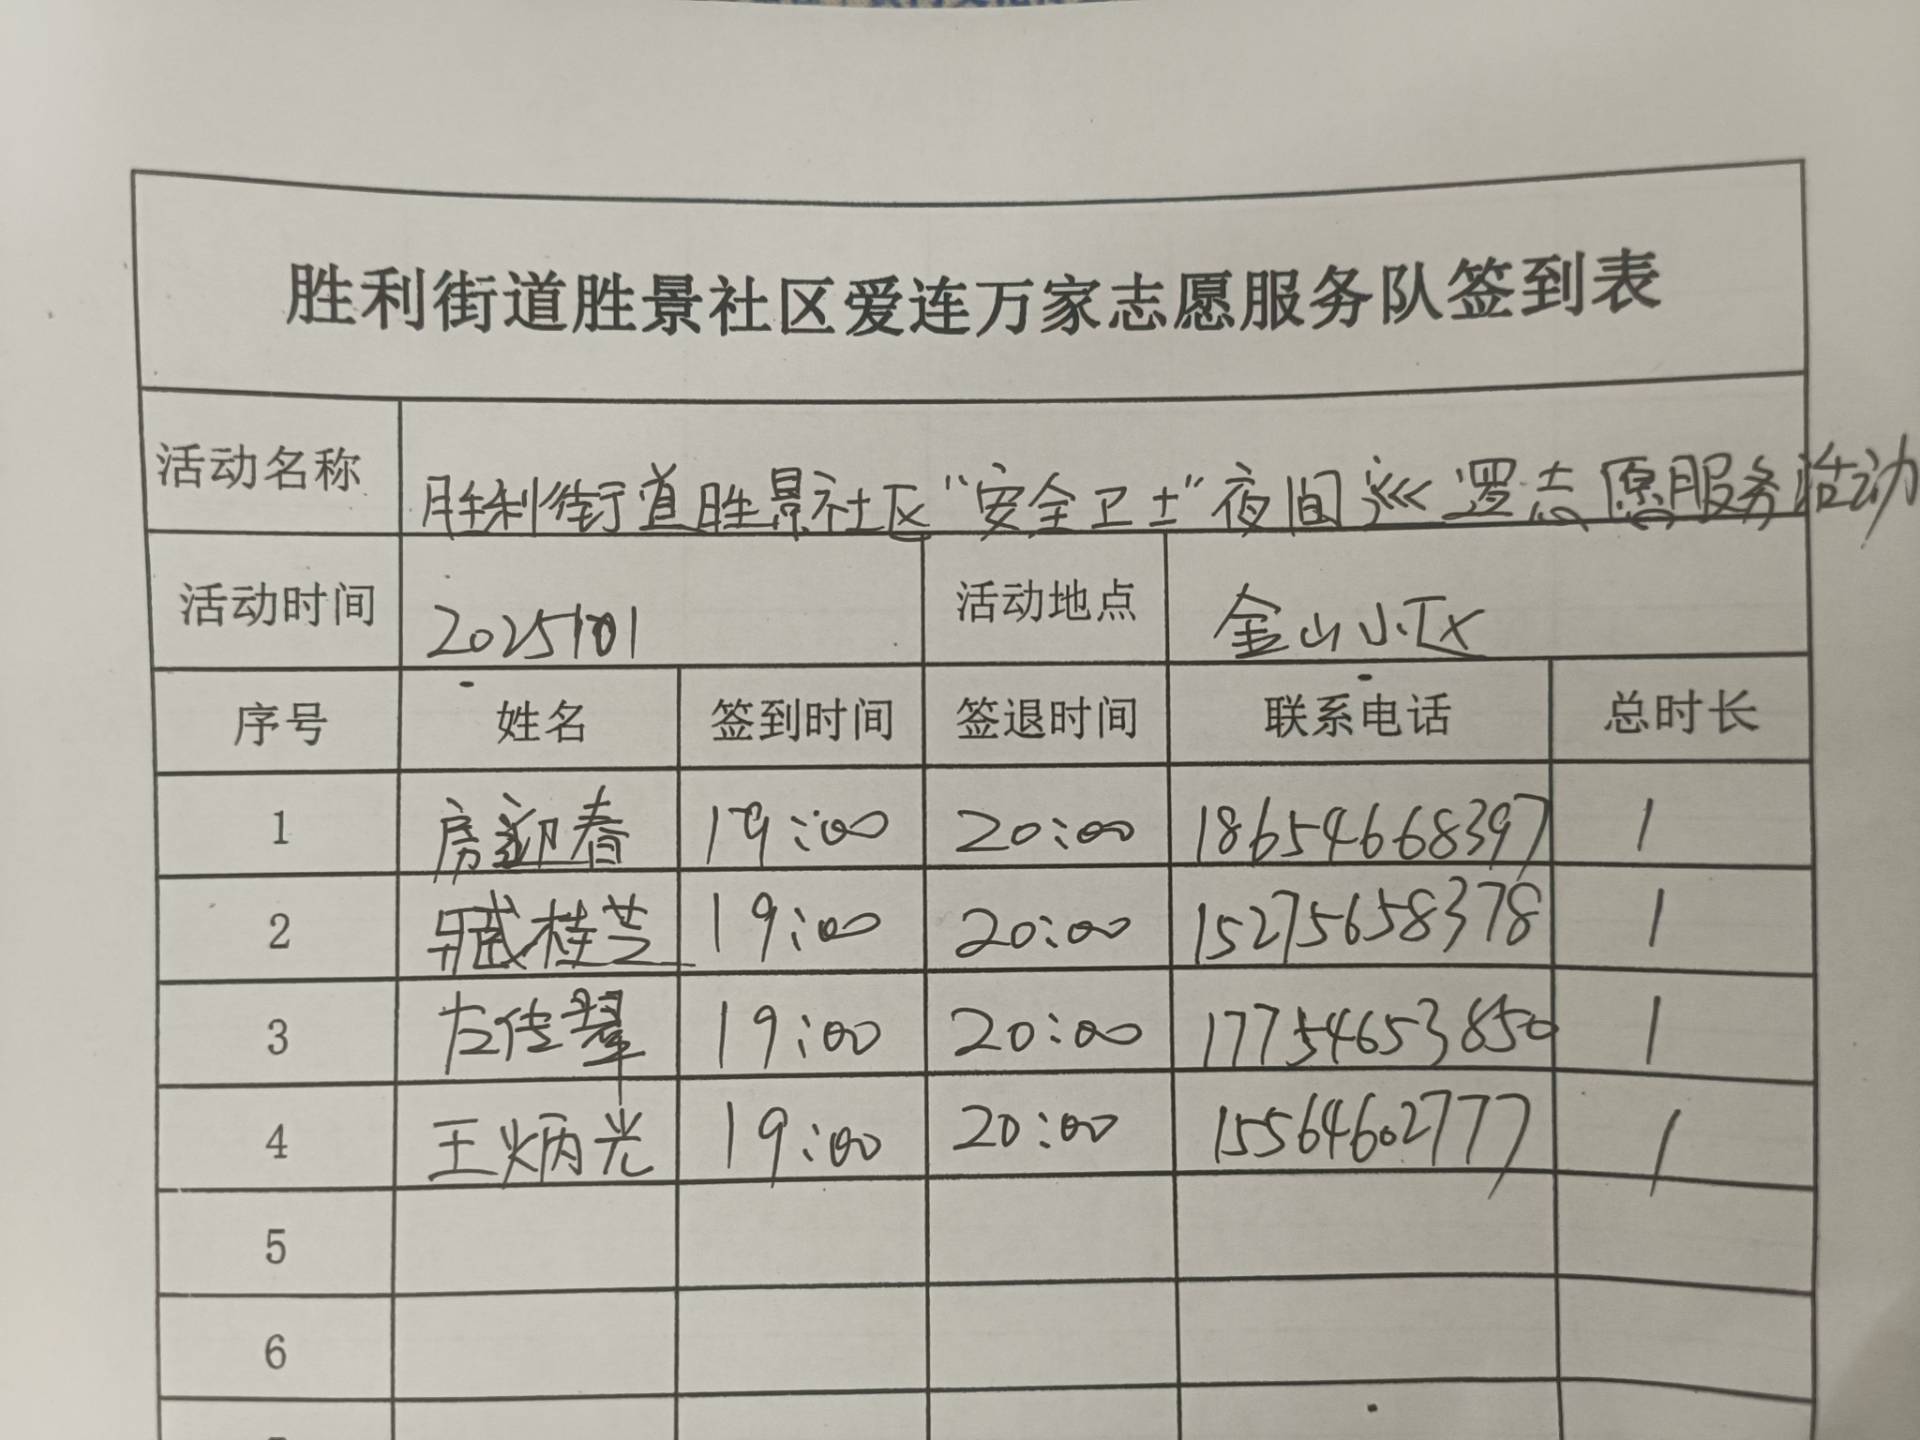 胜利街道胜景社区爱连万家志愿服务队签到表
活动名称 胜利街道胜景社区“安全卫士”夜间巡逻志愿服务活动
活动时间 2025101 活动地点 金山小区
序号 姓名 签到时间 签退时间 联系电话 总时长
1 房迎春 19:00 20:00 18654668397 1
2 臧桂芝 19:00 20:00 15275658378 1
3 左传翠 19:00 20:00 17754653850 1
4 王炳光 19:00 20:00 15564602777 1
5
6